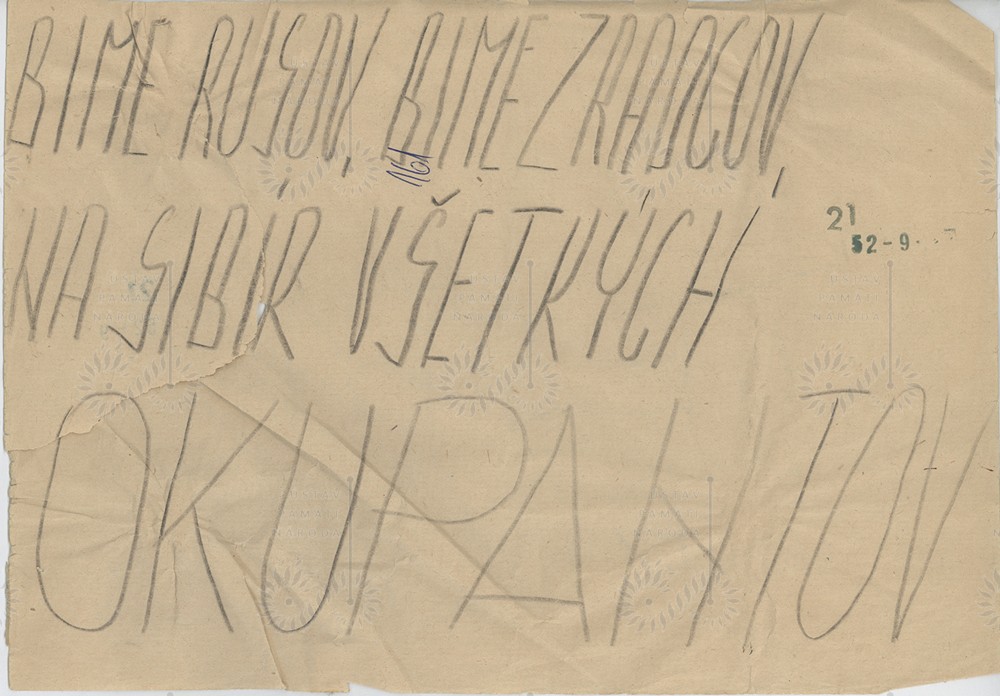 BIME RUSOV, BIME ZRADCOV,
161
NA SIBIR VŠETKÝCH
21
52-9
OKUPANTOV